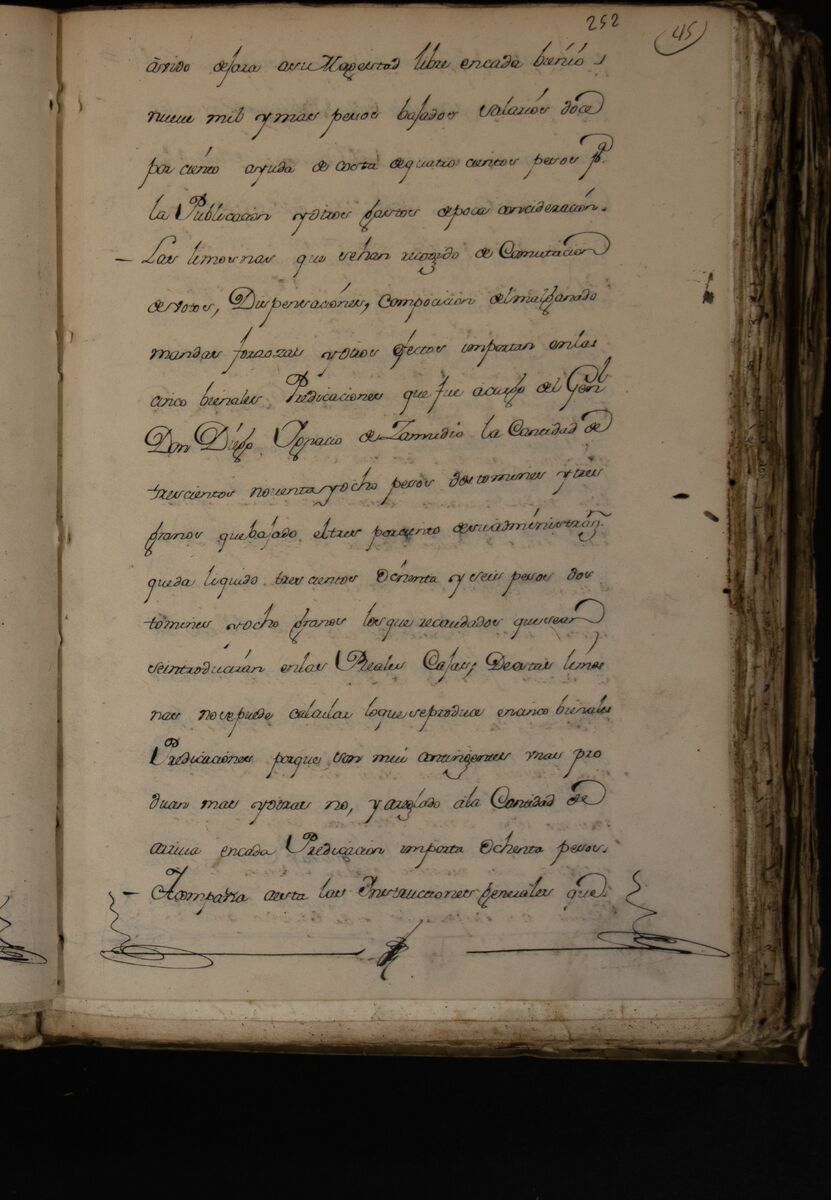 252
45
arrido dejara asu Magestad libre encada bienio
nueve mil ymas pesos bajados salarios doce
por ciento ayuda de costa dequatro cientos pesos pª.
la Publicacion yotros gastos depoca concideracion.
– Las limosnas que sehan recogido de Comutacion
devotos, Dispensaciones, compocicion delmalganado
mandas forzozas yotros efectos importan enlas
cinco bienales Predicaciones que fue acargo del Genl
Don Diego Ygnacio de Zamudio la Cantidad de
trescientos noventa yocho pesos dos tomines ytres
granos quebajado eltres porciento desuadministraⁿ.
queda liquido trescientos Ochenta y seis pesos dos
tomines yocho granos losque recaudados quesean
seintroducirán enlas Reales Cajas; Deestas limos
nas nosepuede calcular loque seproduce encinco bienales
Predicaciones porque son mui contingentes unas pro
ducen mas yotras no, y arreglado ala Cantidad de
arriva encada Predicacion importa Ochenta pesos.
– Acompaña aesta las Instrucciones generales que